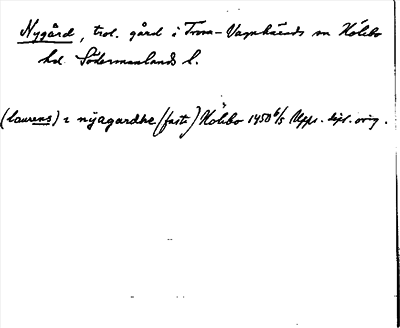 Nygård, trol. gård i Trosa-Vagnhärads sn Hölebo
hd. Södermanlands l.
(laurens) i nyagardhe (faste) Hölebo 1450 6/5 Upps. dipl. orig.